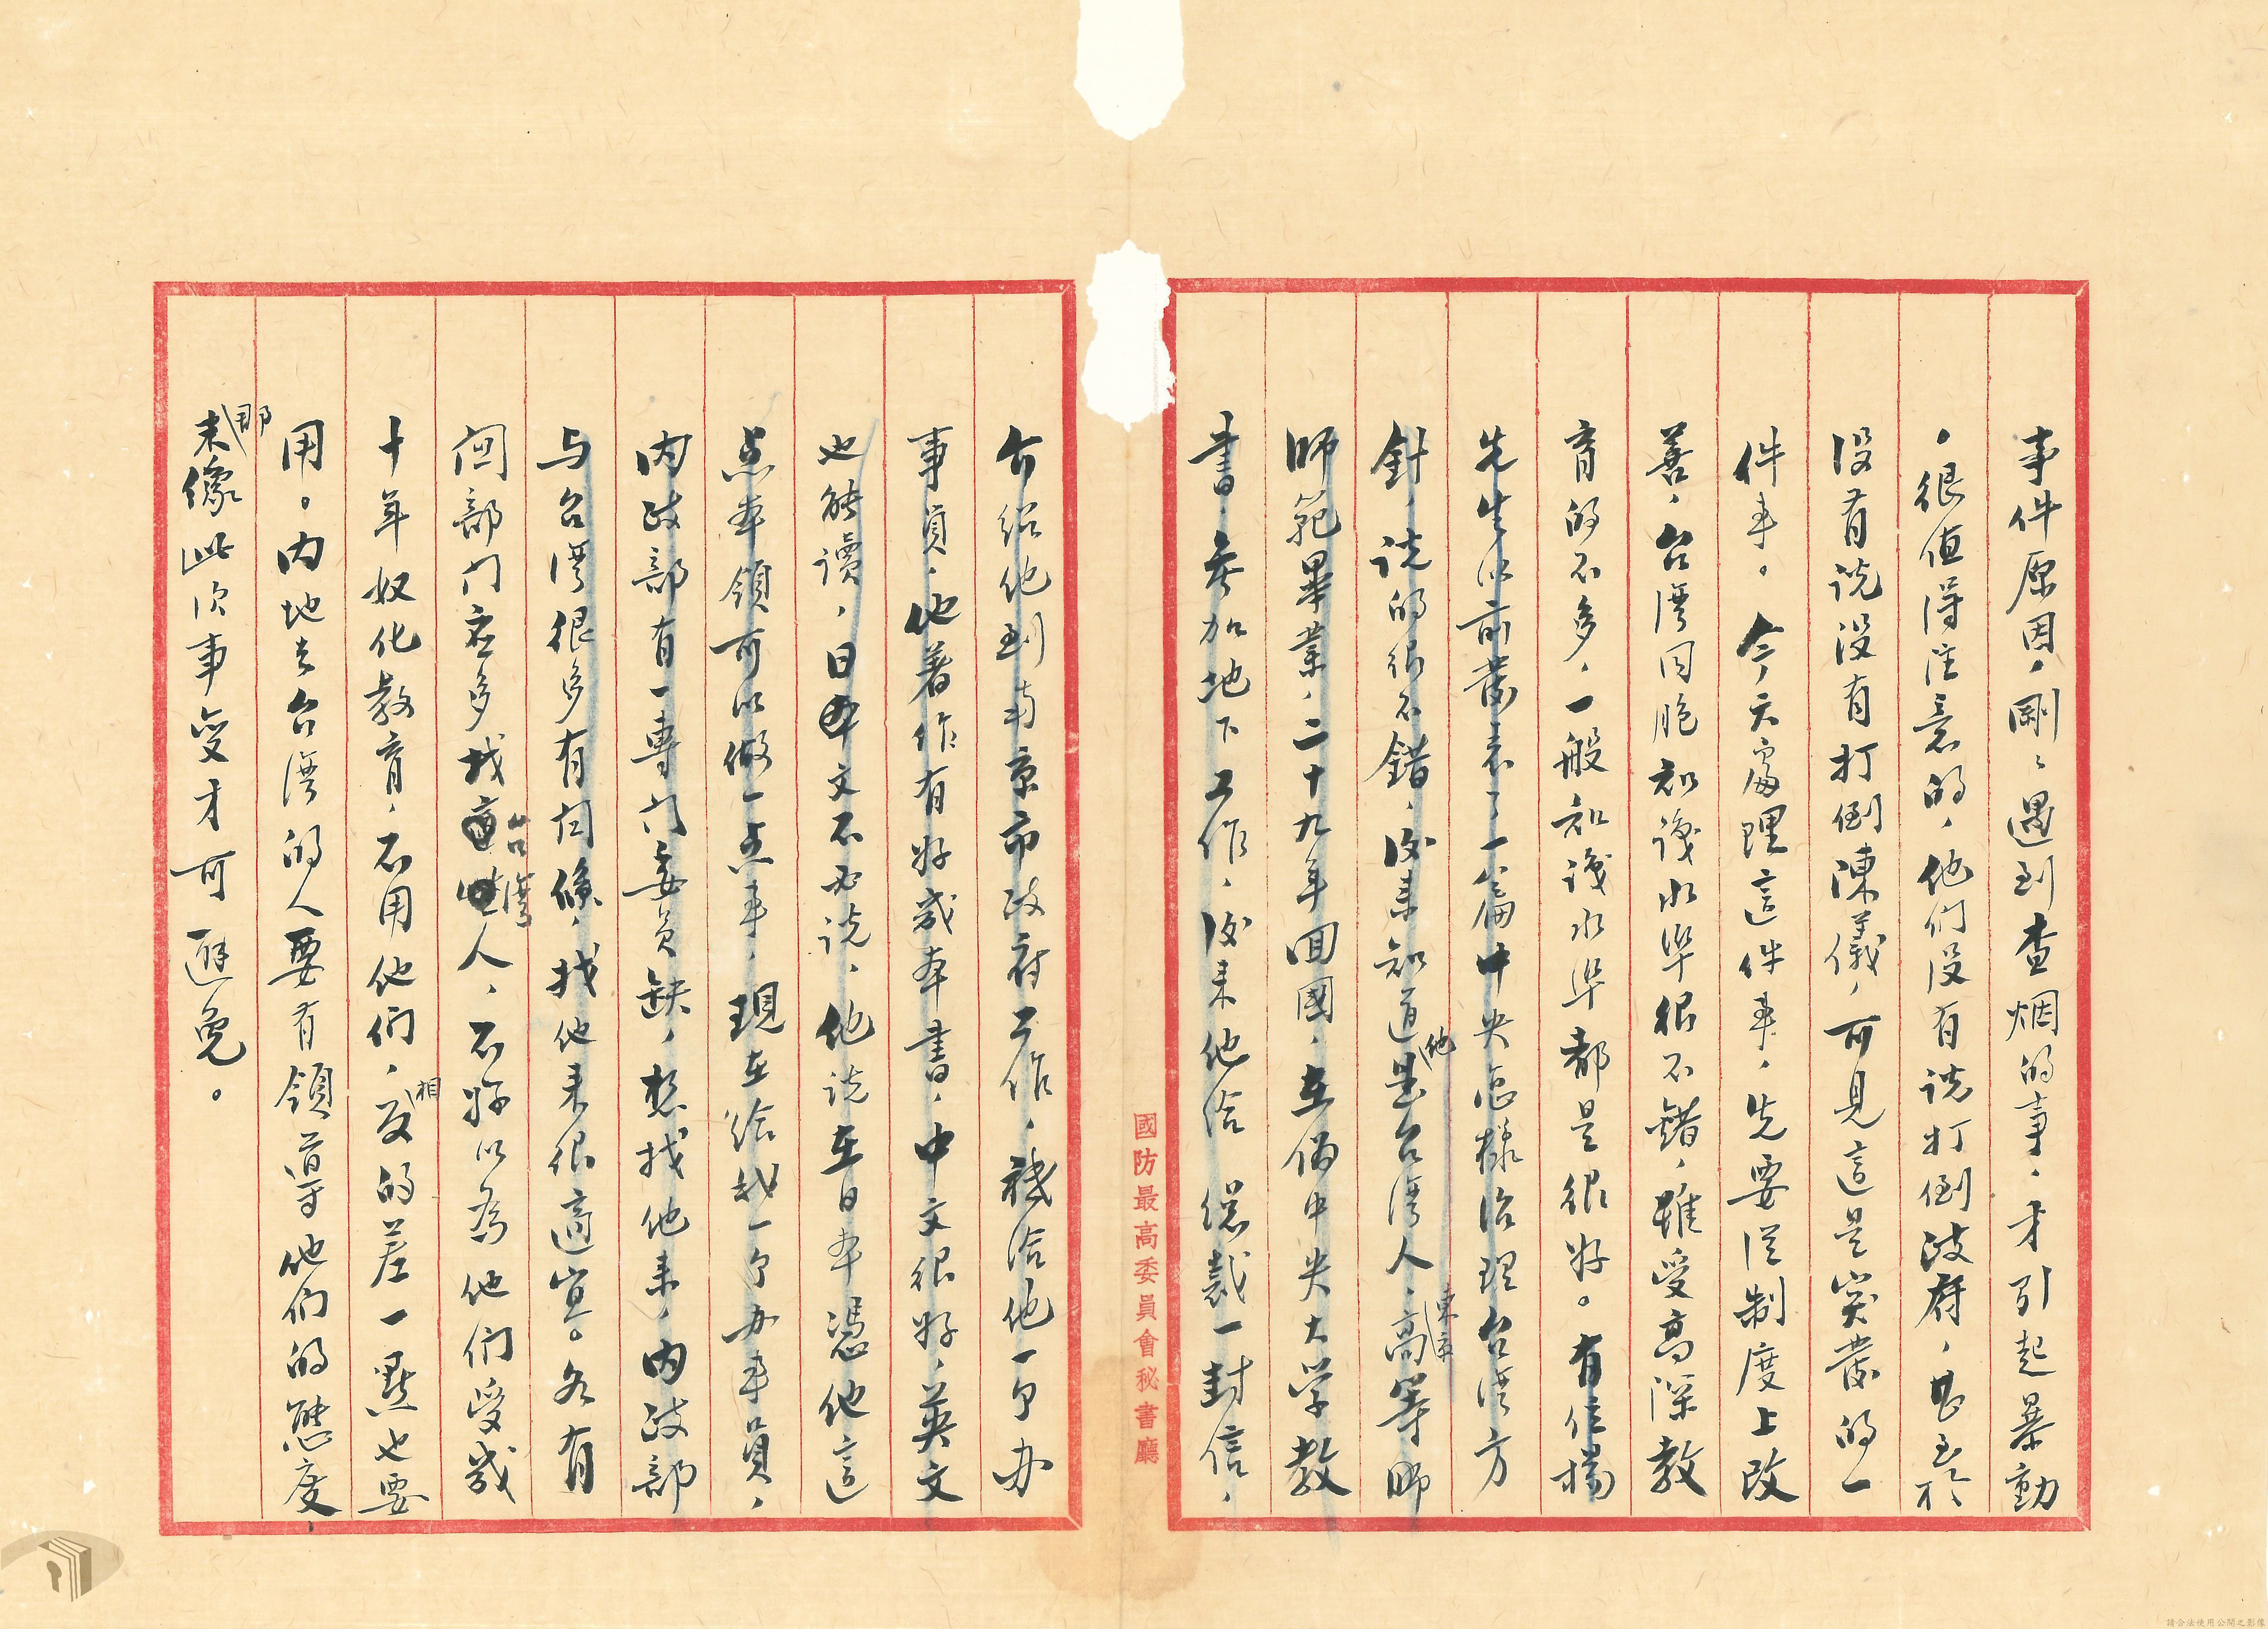 事件原因，剛々遇到查烟的事，才引起暴動
。很值得注意的，他們沒有說打倒政府，甚至於
沒有說沒有打倒陳儀，可見這是突發的一
件事。今天處理這件事，先要從制度上改
善，台灣同胞知識水準很不錯，雖受高深教
育的不多，一般知識水準都是很好。有位楊
先生以前發表了一篇中央怎樣治理台灣方
針，說的很不錯，後來知道他是台灣人，東京高等師
師範畢業，二十九年回國，在偽中央大学教
書，参加地下工作，後来他给總裁一封信，
介绍他到南京市政府工作，祗给他一个办
事員，他著作有好幾本書，中文很好，英文
也能讀，日本文不必説，他説在日本憑他這
点本領可以做一点事，現在给我一个办事員，
内政部有一專门委員缺，想找他来，内政部
与台灣很多有関係，找他来很適宜。各有
関部门应多找台灣人，不好以為他們受幾
十年奴化教育，不用他們，相反的差一點也要
用。内地去台灣的人要有領導他們的態度，
那末像此次事变才可避免。
國防最高委員會秘書廳
請合法使用公開之影像